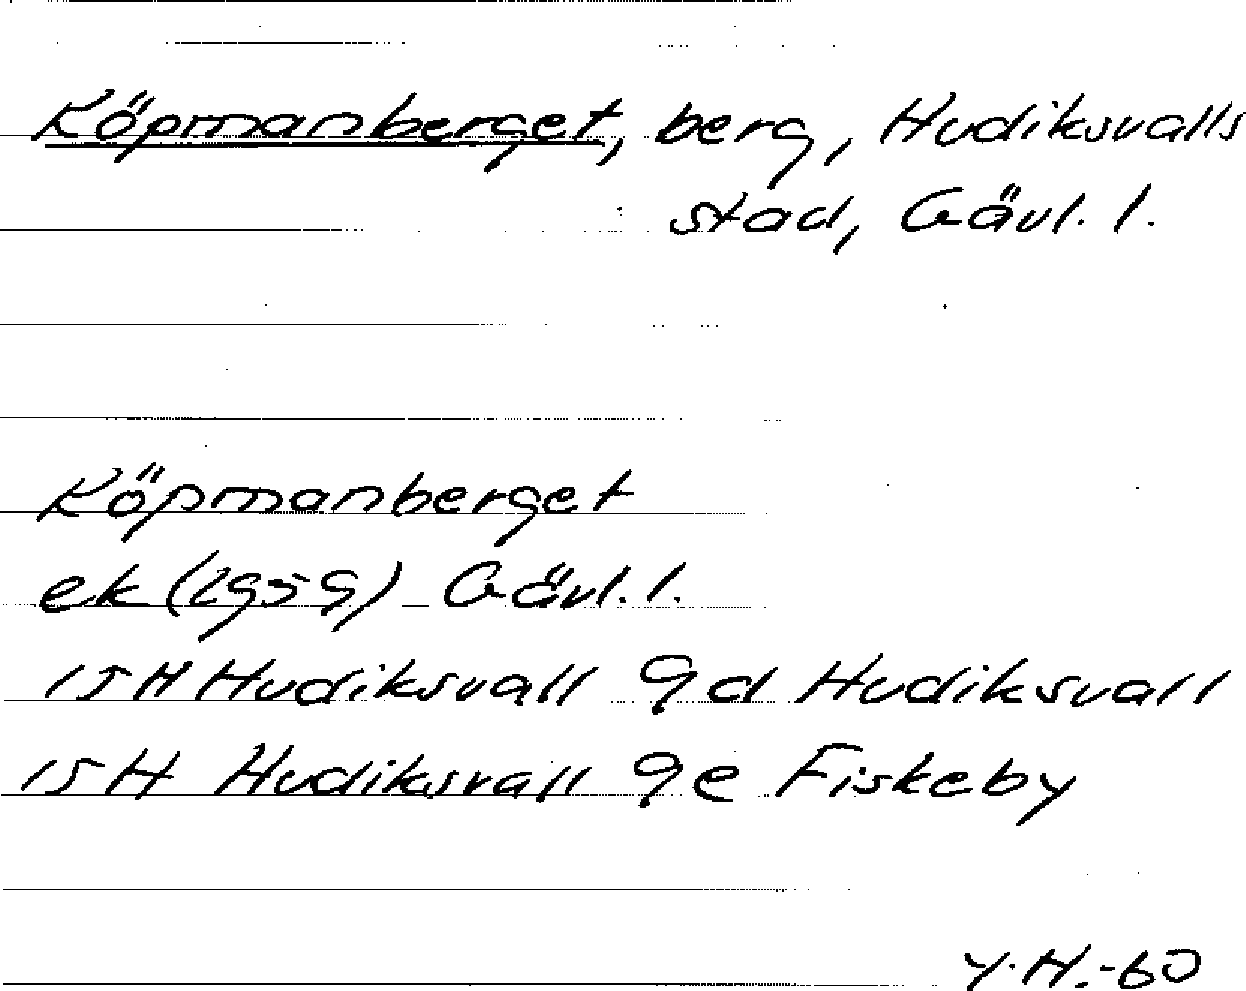 Köpmanberget, berg, Hudiksvalls
stad, Gävl. l.
Köpmanberget
ek (1959) Gävl. l.
15H Hudiksvall 9d Hudiksvall
15H Hudiksvall 9e Fiskeby
Y.H.-60